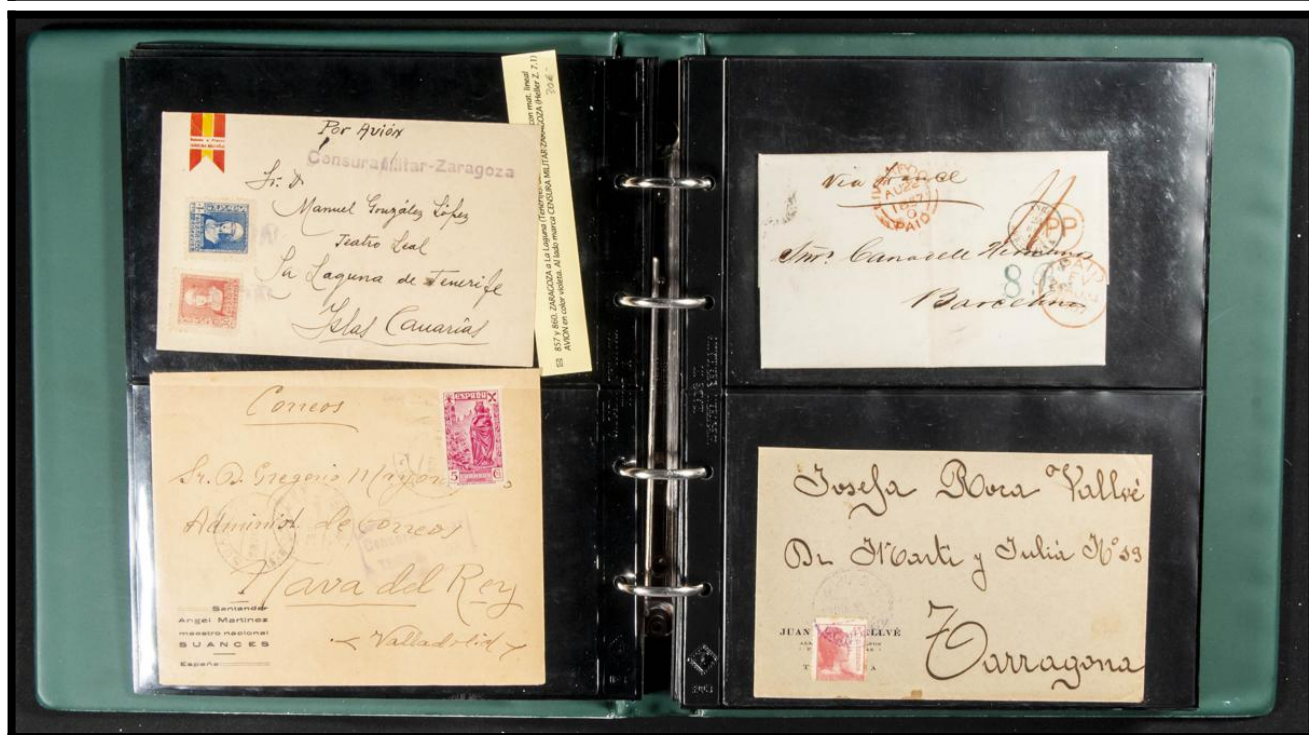 Por Avión
Censura Militar-Zaragoza
Sr. D.
Manuel González López
Teatro Leal
La Laguna de Tenerife
Islas Canarias
857 y 860. ZARAGOZA a La Laguna (Tenerife).
con mat. lineal
AVION en color violeta. Al lado marca CENSURA MILITAR-ZARAGOZA (Heller Z. 7.1)
30€
Correos
ESPAÑA
5 Cts
Sr. D. Gregorio
Administ. de Correos
Nava del Rey
Valladolid
Santander
Angel Martinez
maestro nacional
SUANCES
España
Via France
AU 22
1857
PAID
PP
8
Canadell Hermanos
Barcelona
Josefa Roca Vallvé
Dr. Marti y Juliá Nº 53
Tarragona
JUAN
LLVÉ